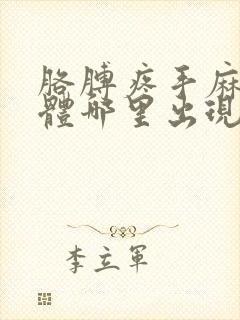 胳膊疼手麻
體哪里出現
李立軍